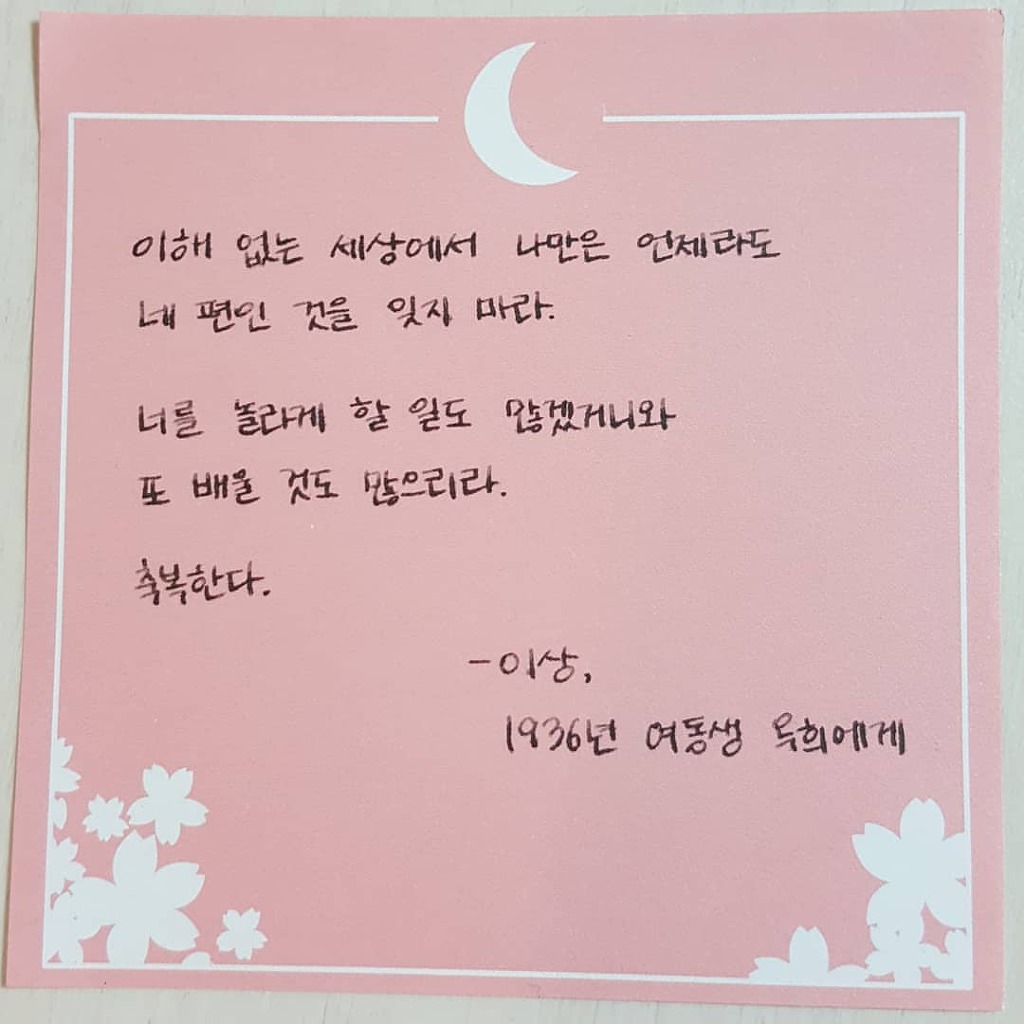 이해 없는 세상에서 나만은 언제라도
네 편인 것을 잊지 마라.
너를 놀라게 할 일도 많겠거니와
또 배울 것도 많으리라.
축복한다.
-이상,
1936년 여동생 옥희에게